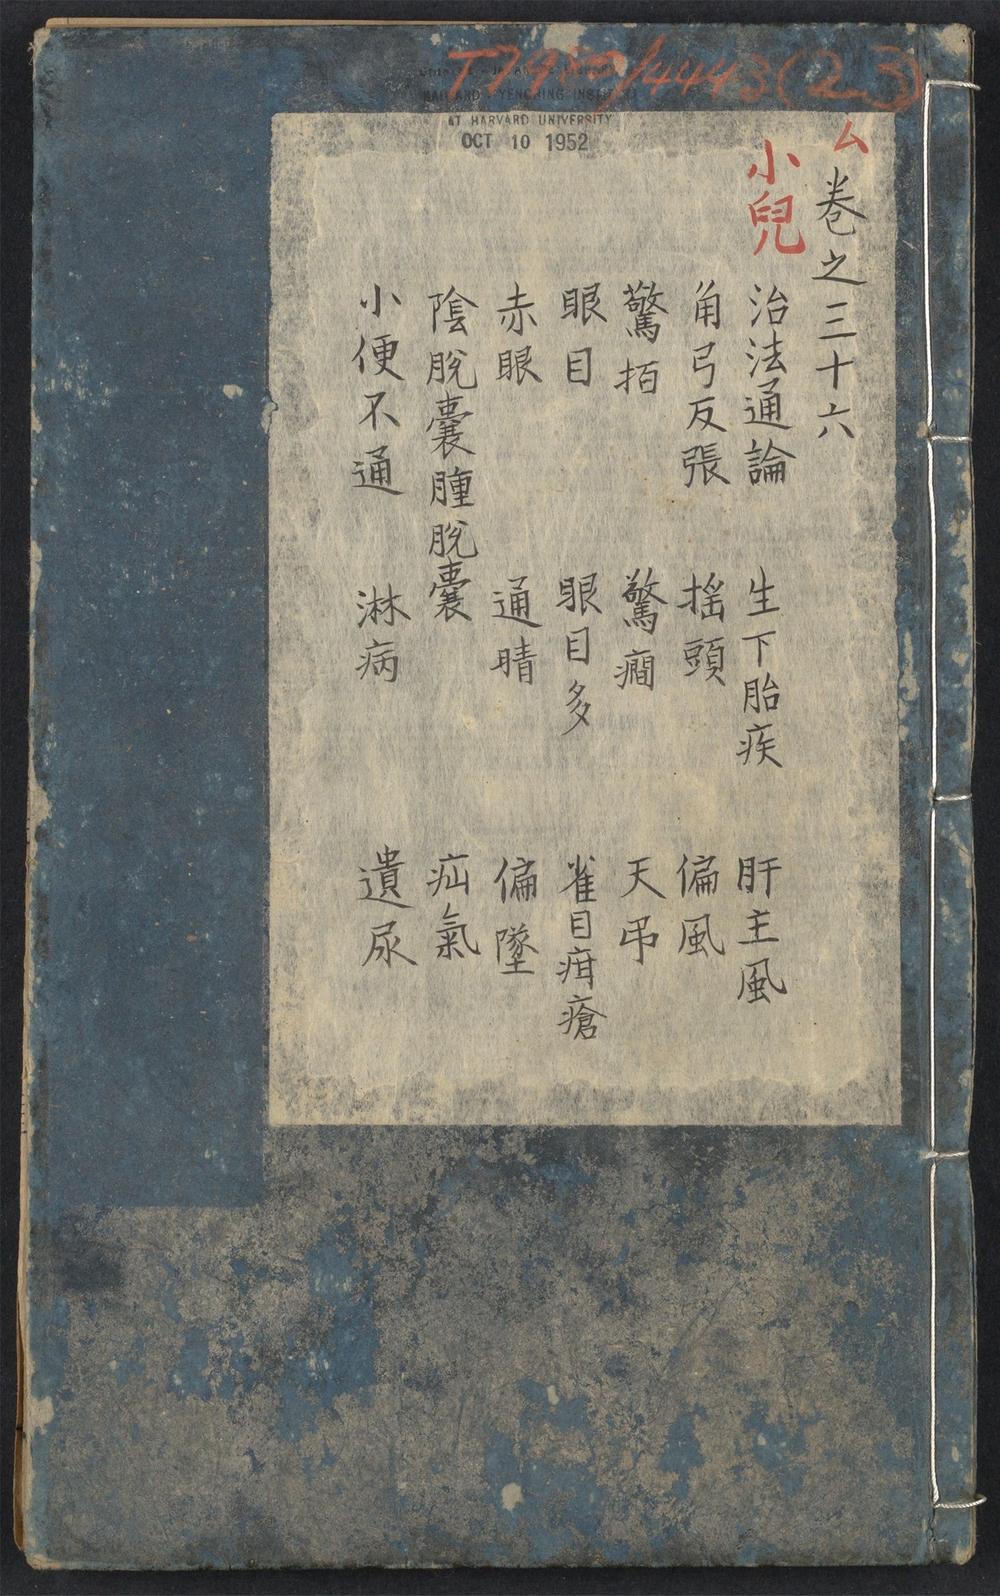 T7950/4443(2-3)
AT HARVARD UNIVERSITY
OCT 10 1952
ム
卷之三十六
小兒
治法通論 生下胎疾 肝主風
角弓反張 揺頭 偏風
驚拍 驚癇 天吊
眼目 眼目多 雀目疳瘡
赤眼 通睛 偏墜
陰脫囊腫脫囊 疝氣
小便不通 淋病 遺尿